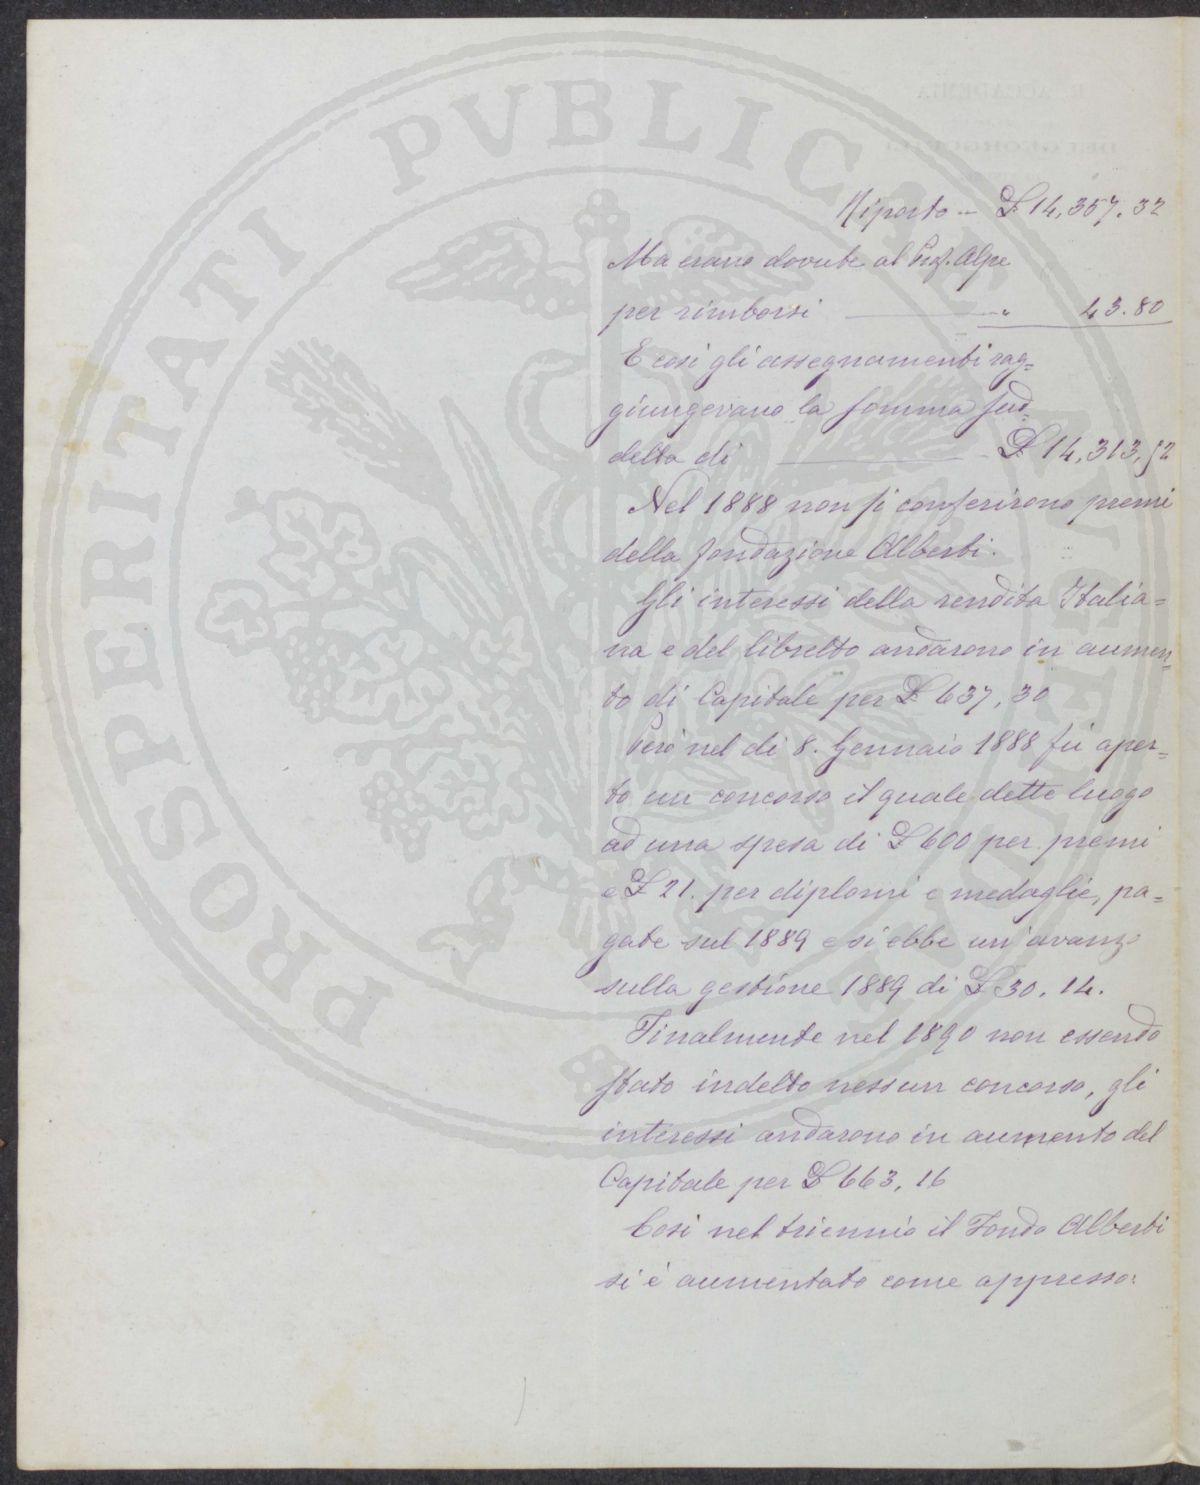 PROSPERITATI PVBLICAE AVGENDAE
Riporto -- £ 14,357.32
Ma erano dovute al Prof. Alpe
per rimborsi " 43.80
E così gli assegnamenti rag=
giungevano la somma sud=
detta di £ 14,313,52
Nel 1888 non si conferirono premi
della fondazione Alberti.
Gli interessi della rendita Italia=
na e del libretto andarono in aumen=
to di Capitale per £ 637,30
Però nel dì 8. Gennaio 1888 fù aper=
to un concorso il quale dette luogo
ad una spesa di £ 600 per premi
e £ 21. per diplomi e medaglie, pa=
gate sul 1889 e si ebbe un'avanzo
sulla gestione 1889 di £ 30.14.
Finalmente nel 1890 non essendo
stato indetto nessun concorso, gli
interessi andarono in aumento del
Capitale per £ 663,16
Così nel triennio il Fondo Alberti
si è aumentato come appresso: